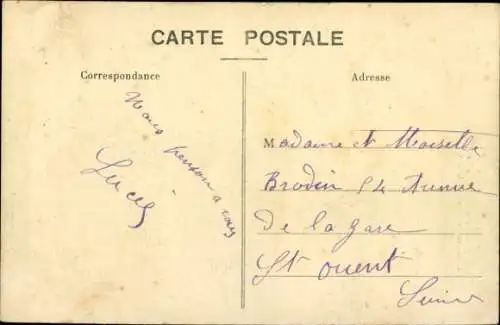 CARTE POSTALE
Correspondance
Adresse
Nous pensons a vous
Lucie
Madame et Moiselle
Brodin 54 Avenue
De la gare
St ouent
Seine